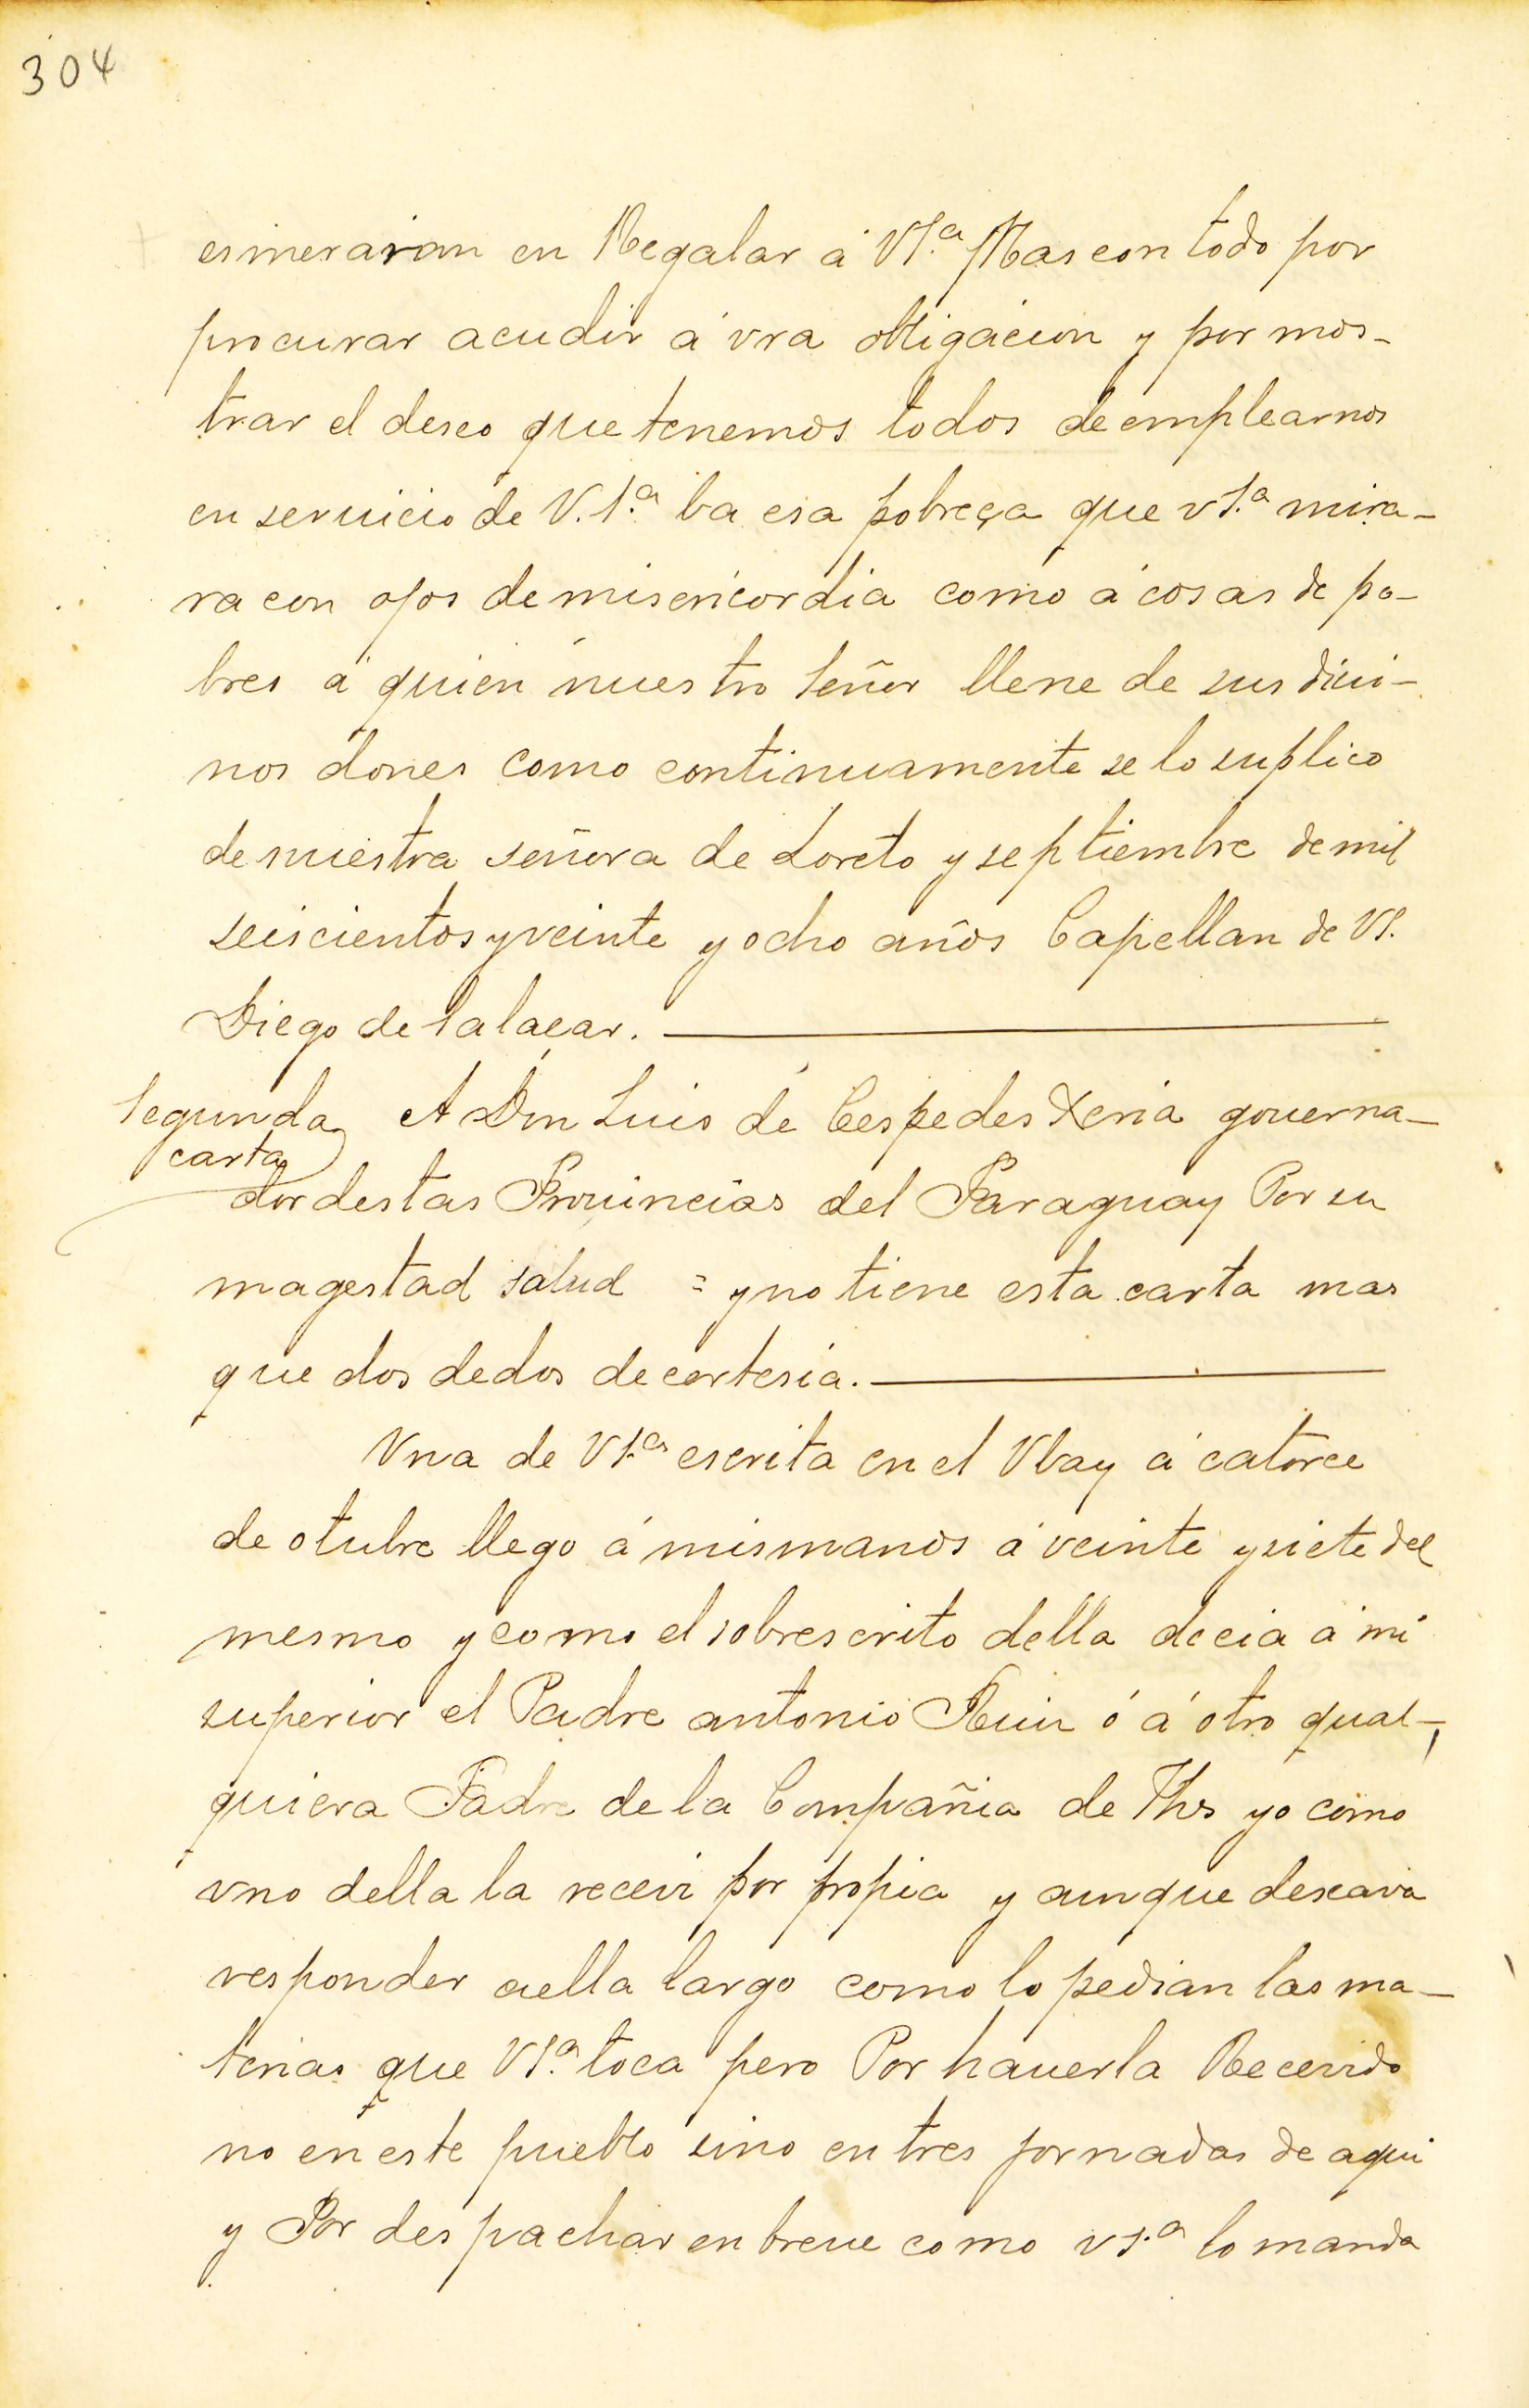 304
esmeraran en Regalar á VS.ª Mas con todo por
procurar acudir á vra obligacion y por mos-
trar el deseo que tenemos todos de emplearnos
en seruicio de V.S.ª ba esa pobreça que vS.ª mira-
ra con ojos de misericordia como á cosas de po-
bres á quien nuestro Señor llene de sus diui-
nos dones como continuamente se lo suplico
de nuestra señora de Loreto y septiembre de mil
seiscientos y veinte y ocho años Capellan de VS.
Diego de Salaçar.
Segunda carta
A Don Luis de Cespedes Xeria gouerna-
dor destas Prouincias del Paraguay Por su
magestad salud = y no tiene esta carta mas
que dos dedos de cortesia.
Vna de VS.ª escrita en el Vbay á catorce
de otubre llego á mis manos á veinte y siete del
mesmo y como el sobrescrito della decia á mi
superior el Padre antonio Ruiz ó á otro qual-
quiera Padre de la Compañia de Jhs yo como
vno della la recevi por propia y aunque deseava
responder aella largo como lo pedian las ma-
terias que VS.ª toca pero Por hauerla Recevido
no en este pueblo sino en tres jornadas de aqui
y Por despachar en breue como vS.ª lo manda